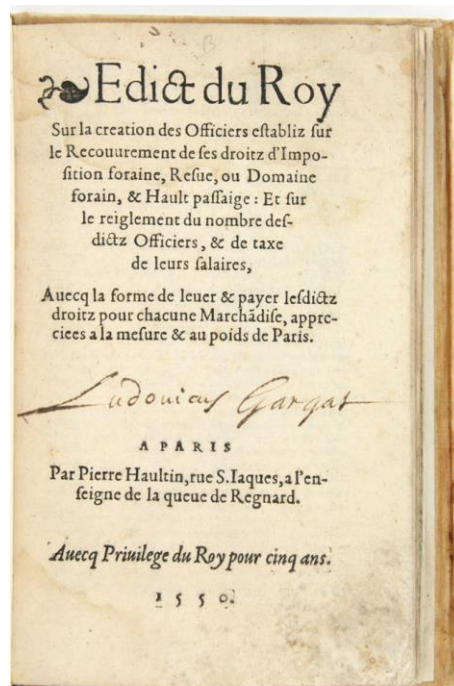 Edict du Roy
Sur la creation des Officiers eſtabliz ſur
le Recouurement de ſes droitz d'Impo-
ſition foraine, Reſue, ou Domaine
forain, & Hault paſſaige : Et ſur
le reiglement du nombre deſ-
dictz Officiers, & de taxe
de leurs ſalaires,
Auecq la forme de leuer & payer leſdictz
droitz pour chacune Marchãdiſe, appre-
ciees a la meſure & au poids de Paris.
Ludouicus Gargat
A PARIS
Par Pierre Haultin, rue S. Iaques, a l'en-
ſeigne de la queue de Regnard.
Auecq Priuilege du Roy pour cinq ans.
1550.